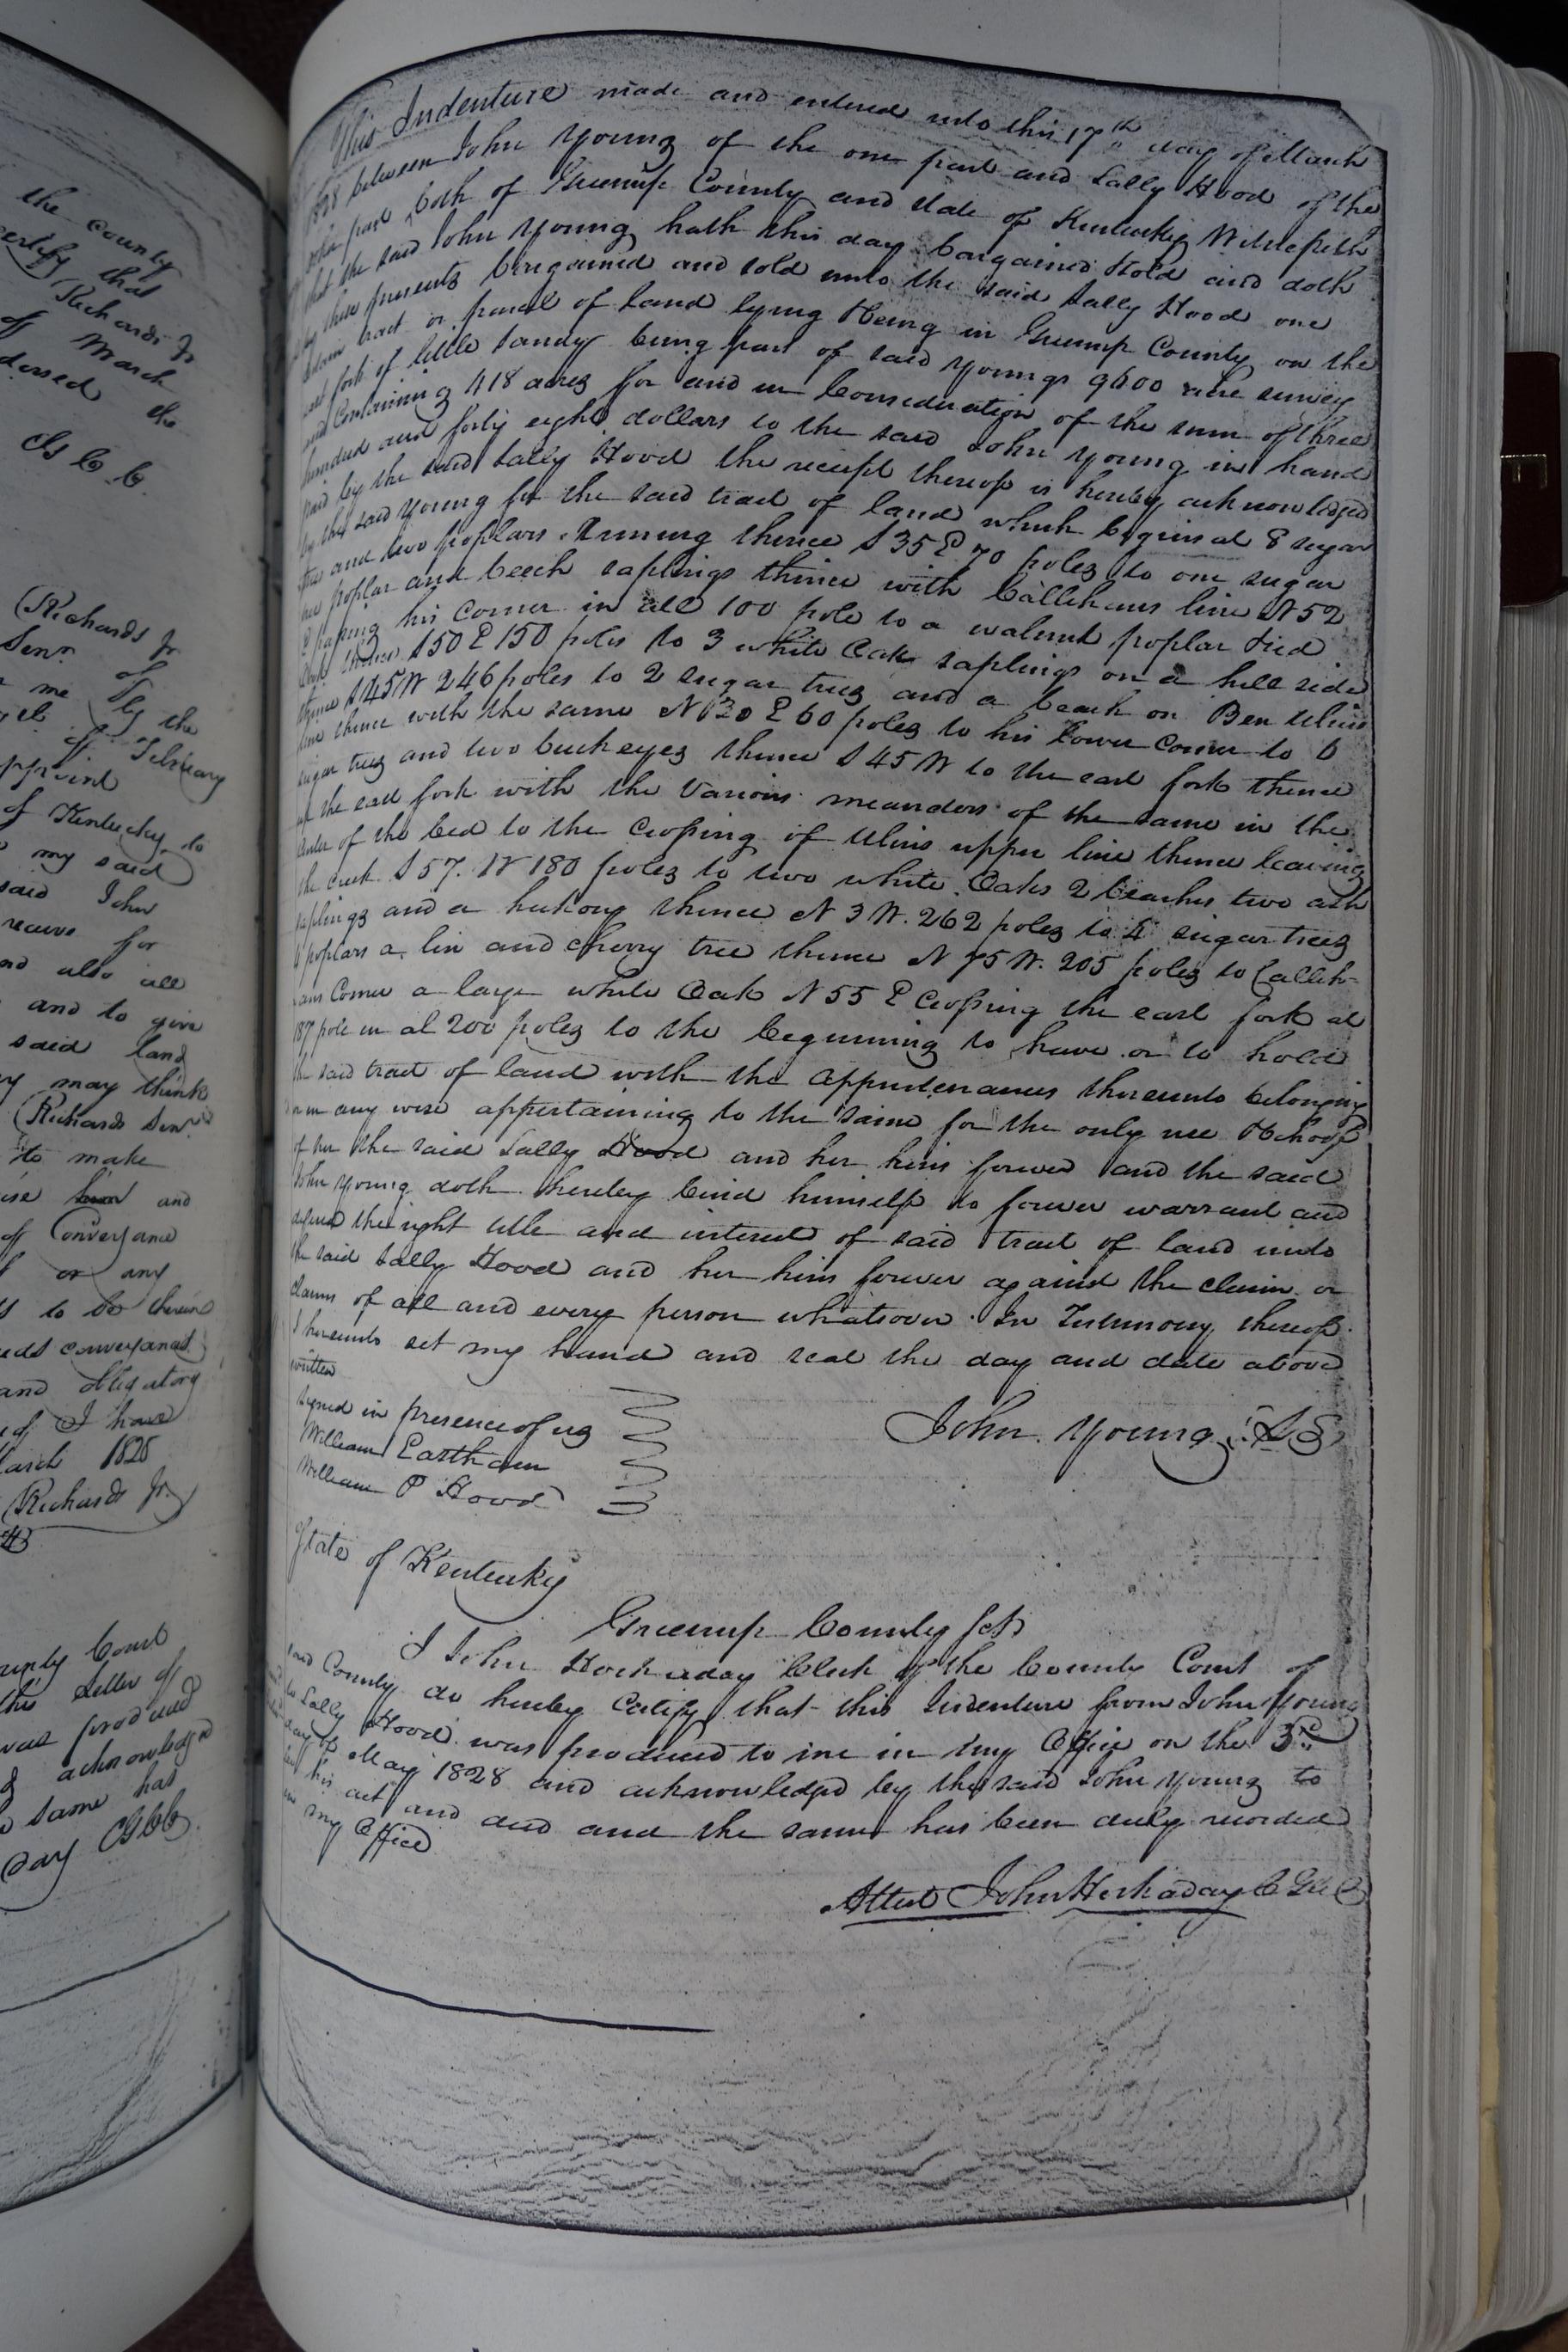 the County
certify that
Richards Jr
of March
dorsed the
Cs C. C.
Richards Jr
Senr. of
me by the
of February
appoint
of Kentucky to
my said
said John
receive for
and also all
and to give
said land
may think
Richards Senr
to make
and
of Conveyance
or any
to be therein
conveyance
and obligatory
I have
March 1828
Richards Jr.
County Court
this Letter of
was produced
& acknowledged
same has
day CGCC
This Indenture made and entered into this 17th day of March
1828 between John Young of the one part and Sally Hood of the
other part both of Greenup County and State of Kentucky Witnesseth
that the said John Young hath this day bargained & sold and doth
by these presents bargained and sold unto the said Sally Hood one
certain tract or parcel of Land lying & being in Greenup County on the
east fork of little Sandy being part of said Youngs 9600 acre survey
and Containing 418 acres for and in Consideration of the sum of three
hundred and forty eight dollars to the said John Young in hand
paid by the said Sally Hood the receipt thereof is hereby acknowledged
by the said Young for the said tract of land which begins at 8 sugar
tree and two poplars. Running thence S 35 E 70 poles to one sugar
one poplar and beech saplings thence with Callihans line N 52
E passing his corner in all 100 pole to a walnut poplar & red
Oak thence S 50 E 150 poles to 3 white Oak saplings on a hill side
thence S 45 W 246 poles to 2 sugar trees and a beach on Ben Ulins
line thence with the same N 30 E 60 poles to his lower corner to 6
sugar trees and two buckeyes thence S 45 W to the east fork thence
up the east fork with the Various meanders of the same in the
center of the bed to the crossing of Ulins upper line thence leaving
the creek S 57. W 180 poles to two white Oaks 2 beaches two ash
saplings and a hickory thence N 3 W. 262 poles to 4 sugar trees
6 poplars a lin and cherry tree thence N 75 W. 205 poles to Callih-
ans Corner a large white Oak N 55 E crossing the east fork at
187 pole in al 200 poles to the beginning to have or to hold
the said tract of land with the appurtenances thereunto belonging
or in any wise appertaining to the same for the only use & behoof
of her the said Sally Hood and her heirs forever and the said
John Young doth hereby bind himself to forever warrant and
defend the right title and interest of said tract of land unto
the said Sally Hood and her heirs forever against the claim or
claims of all and every person whatsoever. In Testimony thereof
I hereunto set my hand and seal the day and date above
written
signed in presence of us
William Eastham
William P Hood
John Young LS
State of Kentucky
Greenup County Sct
I John Hockaday Clerk of the County Court of
said County do hereby Certify that this Indenture from John Young
to Sally Hood was produced to me in my Office on the 3rd
day of May 1828 and acknowledged by the said John Young to
be his act and deed and the same has been duly recorded
in my Office
Attest John Hockaday C G C C